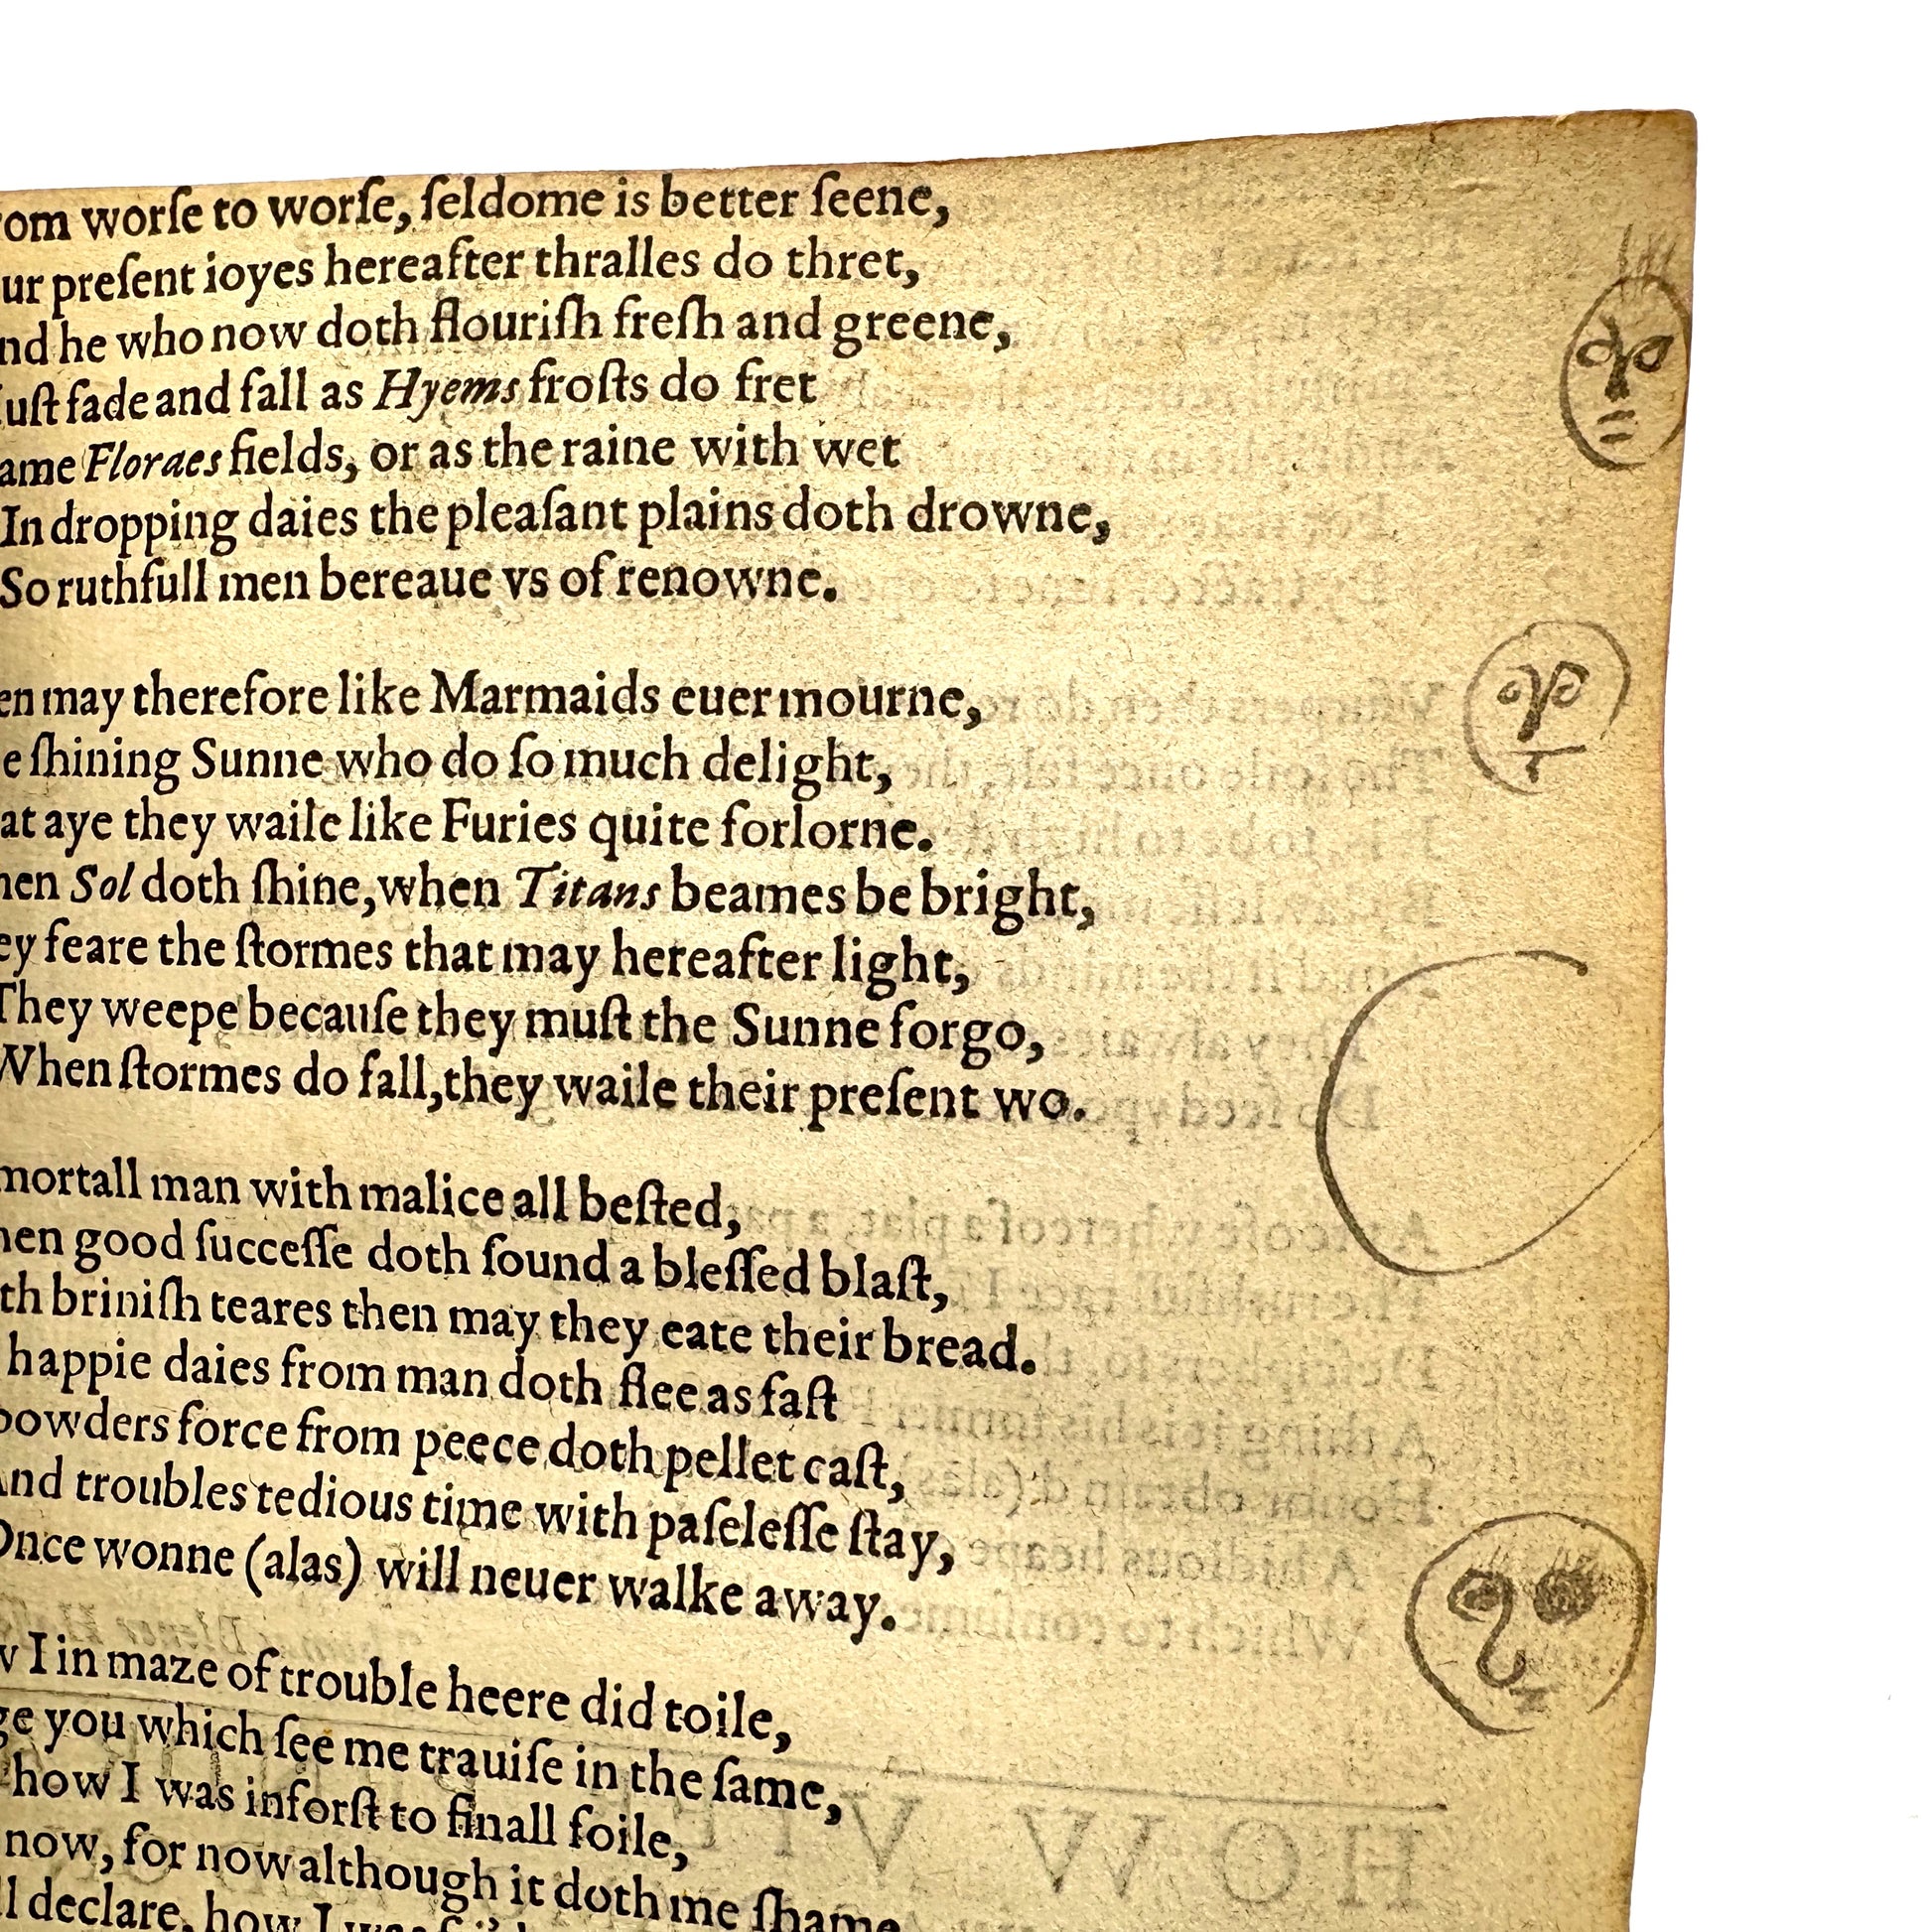 om worſe to worſe, ſeldome is better ſeene,
ur preſent ioyes hereafter thralles do thret,
nd he who now doth flouriſh freſh and greene,
uſt fade and fall as Hyems froſts do fret
ame Floraes fields, or as the raine with wet
In dropping daies the pleaſant plains doth drowne,
So ruthfull men bereaue vs of renowne.
en may therefore like Marmaids euer mourne,
e ſhining Sunne who do ſo much delight,
at aye they waile like Furies quite forlorne.
hen Sol doth ſhine, when Titans beames be bright,
ey feare the ſtormes that may hereafter light,
They weepe becauſe they muſt the Sunne forgo,
When ſtormes do fall, they waile their preſent wo.
mortall man with malice all beſted,
hen good ſucceſſe doth ſound a bleſſed blaſt,
th briniſh teares then may they eate their bread.
happie daies from man doth flee as faſt
powders force from peece doth pellet caſt,
And troubles tedious time with paſeleſſe ſtay,
Once wonne (alas) will neuer walke away.
w I in maze of trouble heere did toile,
ge you which ſee me trauiſe in the ſame,
how I was inforſt to finall foile,
now, for now although it doth me ſhame
l declare, how I was